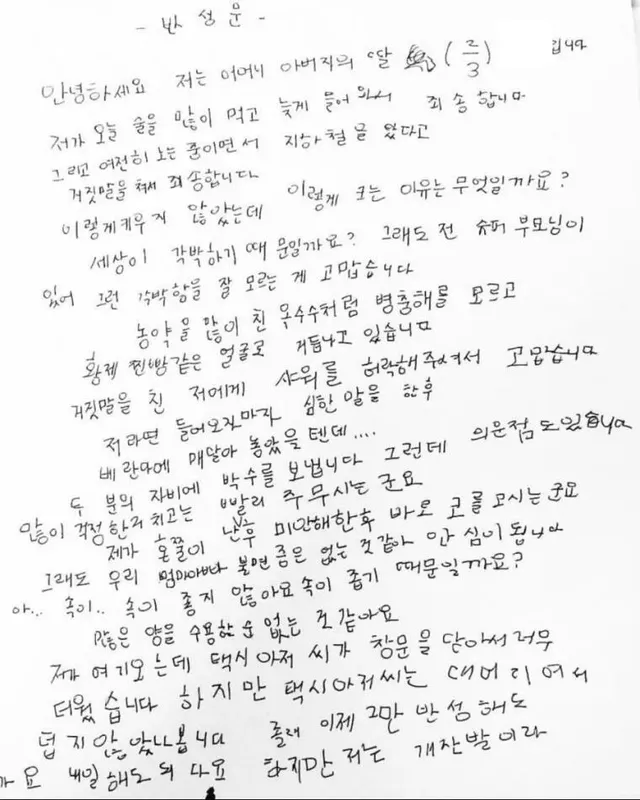 - 반 성 문 -
안녕하세요 저는 어머니 아버지의 딸 (ㄹ/3) 입니다
저가 오늘 술을 많이 먹고 늦게 들어와서 죄송합니다
그리고 여전히 노는 중이면서 지하철 글 왔다고
거짓말을 쳐서 죄송합니다
이렇게키우지 않았는데 이렇게 크는 이유는 무엇일까요?
세상이 각박하기 때문일까요? 그래도 전 슈퍼 부모님이
있어 그런 각박함을 잘 모르는 게 고맙습니다
농약을 많이 친 옥수수처럼 병충해를 모르고
황제 찐빵같은 얼굴로 거듭나고 있습니다
거짓말을 친 저에게 샤워를 허락해주셔서 고맙습니다
저라면 들어오자마자 심한 말을 한후
베란다에 매달아 놓았을 텐데....
두 분의 자비에 박수를 보냅니다 그런데 의문점도있습니다
많이 걱정한거 치고는 빨리 주무시는 군요
제가 혼줄이 난후 미안해한후 바로 코를 고시는 군요
그래도 우리 엄마아빠 불면증은 없는 것같아 안심이 됩니다
아... 속이.. 속이 좋지 않아요 속이 좁기 때문일까요?
많은 양을 수용할순 없는 것같아요
제가 여기오는데 택시아저씨가 창문을 닫아서 너무
더웠습니다 하지만 택시아저씨는 대머리여서
덥지않았나봅니다 졸려 이제 그만 반성해도
까요 내일 해도 되나요 하지만 저는 개잔발이라